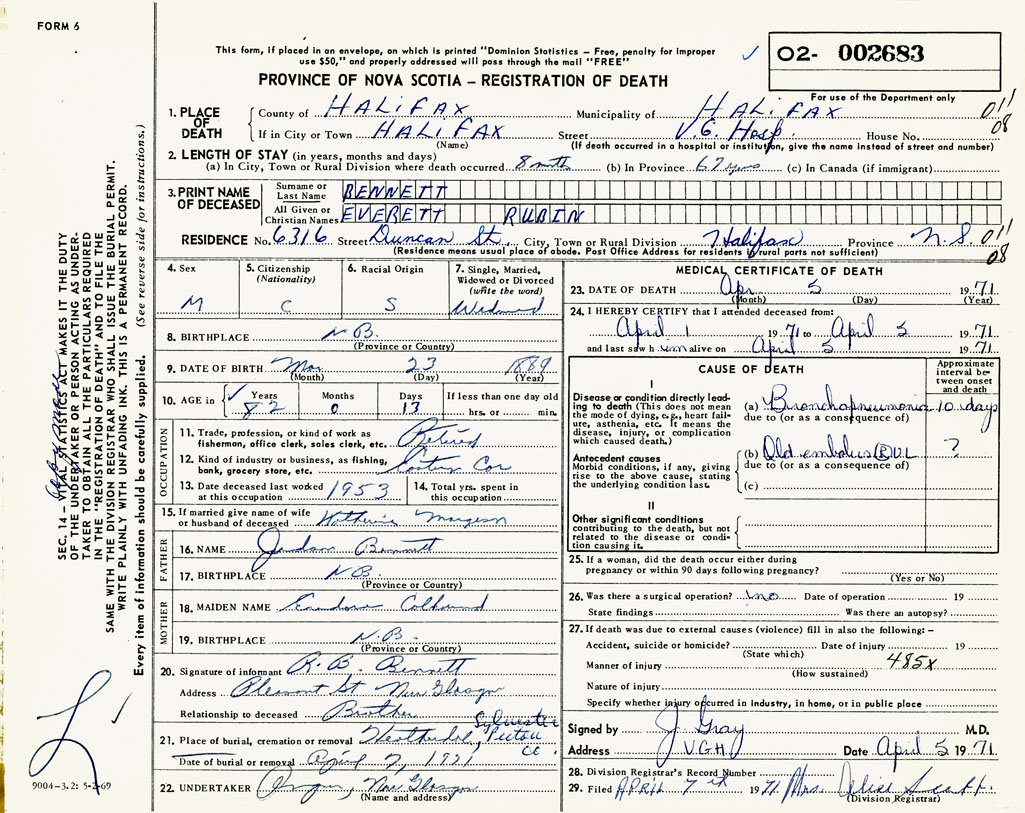 FORM 6
This form, if placed in an envelope, on which is printed "Dominion Statistics – Free, penalty for improper
use $50," and properly addressed will pass through the mail "FREE"
02- 002683
PROVINCE OF NOVA SCOTIA – REGISTRATION OF DEATH
For use of the Department only
1. PLACE OF DEATH
County of HALIFAX Municipality of HALIFAX 011
If in City or Town HALIFAX Street V.G. Hosp. House No. 08
(Name) (If death occurred in a hospital or institution, give the name instead of street and number)
2. LENGTH OF STAY (in years, months and days)
(a) In City, Town or Rural Division where death occurred 8 mths (b) In Province 67 yrs (c) In Canada (if immigrant)
3. PRINT NAME OF DECEASED
Surname or Last Name BENNETT
All Given or Christian Names EVERETT RUBIN
RESIDENCE No. 6316 Street Duncan St. City, Town or Rural Division Halifax Province N.S. 011
(Residence means usual place of abode. Post Office Address for residents of rural parts not sufficient) 08
4. Sex M
5. Citizenship (Nationality) C
6. Racial Origin S
7. Single, Married, Widowed or Divorced (write the word) Widowed
8. BIRTHPLACE N.B.
(Province or Country)
9. DATE OF BIRTH Mar 23 1889
(Month) (Day) (Year)
10. AGE in Years Months Days If less than one day old
82 0 13 hrs. or min.
OCCUPATION
11. Trade, profession, or kind of work as fisherman, office clerk, sales clerk, etc. Retired
12. Kind of industry or business, as fishing, bank, grocery store, etc. Eastern Car
13. Date deceased last worked at this occupation 1953
14. Total yrs. spent in this occupation
15. If married give name of wife or husband of deceased Margeson
FATHER
16. NAME Jordan Bennett
17. BIRTHPLACE N.B.
(Province or Country)
MOTHER
18. MAIDEN NAME
19. BIRTHPLACE N.B.
(Province or Country)
20. Signature of informant R.B. Bennett
Address Pleasant St New Glasgow
Relationship to deceased Brother
21. Place of burial, cremation or removal Heatherdel, Sylvester Pictou Co.
Date of burial or removal April 7, 1971
22. UNDERTAKER New Glasgow
(Name and address)
MEDICAL CERTIFICATE OF DEATH
23. DATE OF DEATH Apr 5 1971
(Month) (Day) (Year)
24. I HEREBY CERTIFY that I attended deceased from:
April 1 1971 to April 5 1971
and last saw him alive on April 5 1971
CAUSE OF DEATH
Approximate interval between onset and death
I
Disease or condition directly leading to death (This does not mean the mode of dying, e.g., heart failure, asthenia, etc. It means the disease, injury, or complication which caused death.)
(a) Bronchopneumonia 10 days
due to (or as a consequence of)
Antecedent causes
Morbid conditions, if any, giving rise to the above cause, stating the underlying condition last.
(b) Old embolus (R) U.L ?
due to (or as a consequence of)
(c)
II
Other significant conditions contributing to the death, but not related to the disease or condition causing it.
25. If a woman, did the death occur either during
pregnancy or within 90 days following pregnancy?
(Yes or No)
26. Was there a surgical operation? no Date of operation 19
State findings Was there an autopsy?
27. If death was due to external causes (violence) fill in also the following: –
Accident, suicide or homicide? Date of injury 19
(State which)
Manner of injury 485x
(How sustained)
Nature of injury
Specify whether injury occurred in industry, in home, or in public place
Signed by J Gray M.D.
Address V.G.H Date April 5 1971
28. Division Registrar's Record Number
29. Filed APRIL 7th 1971 Mrs. Alise Scott
(Division Registrar)
SEC. 14 – VITAL STATISTICS ACT MAKES IT THE DUTY
OF THE UNDERTAKER OR PERSON ACTING AS UNDERTAKER TO OBTAIN ALL THE PARTICULARS REQUIRED
IN THE "REGISTRATION OF DEATH" AND TO FILE THE
SAME WITH THE DIVISION REGISTRAR WHO SHALL ISSUE THE BURIAL PERMIT.
WRITE PLAINLY WITH UNFADING INK. THIS IS A PERMANENT RECORD.
Every item of information should be carefully supplied. (See reverse side for instructions.)
9004–3.2: 5-2-69